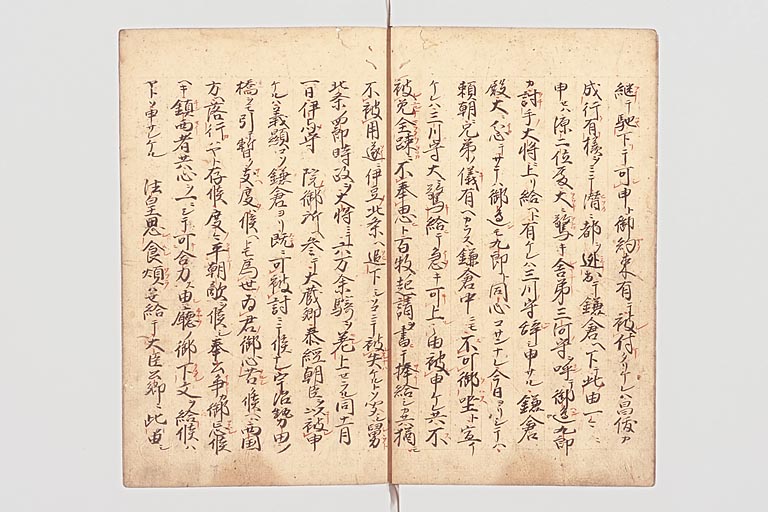 継テ馳下テ可申ト御約束有テ被付タリケレハ昌俊カ
成行有様ヲミテ潜ニ都ヲ逃出テ鎌倉ヘ下テ此由一々ニ
申ス源二位殿大驚キ舎弟三河守ヲ呼テ御辺九郎
カ討手ノ大将ニ上リ給ヘト有ケレハ三川守辞シ申サル鎌倉
殿大ニ忿テサテハ御辺モ九郎ト同心コサンナレ今日ヨリシテハ
頼朝兄弟ノ儀有ヘカラス鎌倉中ニモ不可御坐ト宣
ケレハ三川守大ニ驚給テ急キ可上之由被申ケレ共不
被免全疎ニ不奉思ト百枚起請ヲ書テ捧給シ共猶
不被用遂ニ伊豆ノ北条ヘ追下シソコニテ被失ケルトソ舅
北条四郎時政ヲ大将ニテ六万余騎ヲ差上セラル同十一月
一日伊与守院御所ヘ参テ大蔵卿泰経朝臣ヲ以被申
ケルハ義顕コソ鎌倉ヨリ既ニ可被討ニテ候ヘ宇治勢田ノ
橋ヲ引暫ク支度候ヘトモ為世為君御心苦候ヘハ西国
方ヘ落行ハヤト存候度々平朝敵候シ奉公争カ御忘候
ヘキ鎮西者共心ヲ一ニシテ可合力由ノ庁ノ御下文ヲ給候ハ
ヤト申サレケレハ　法皇思食煩ハセ給テ大臣公卿ニ此由ヲ